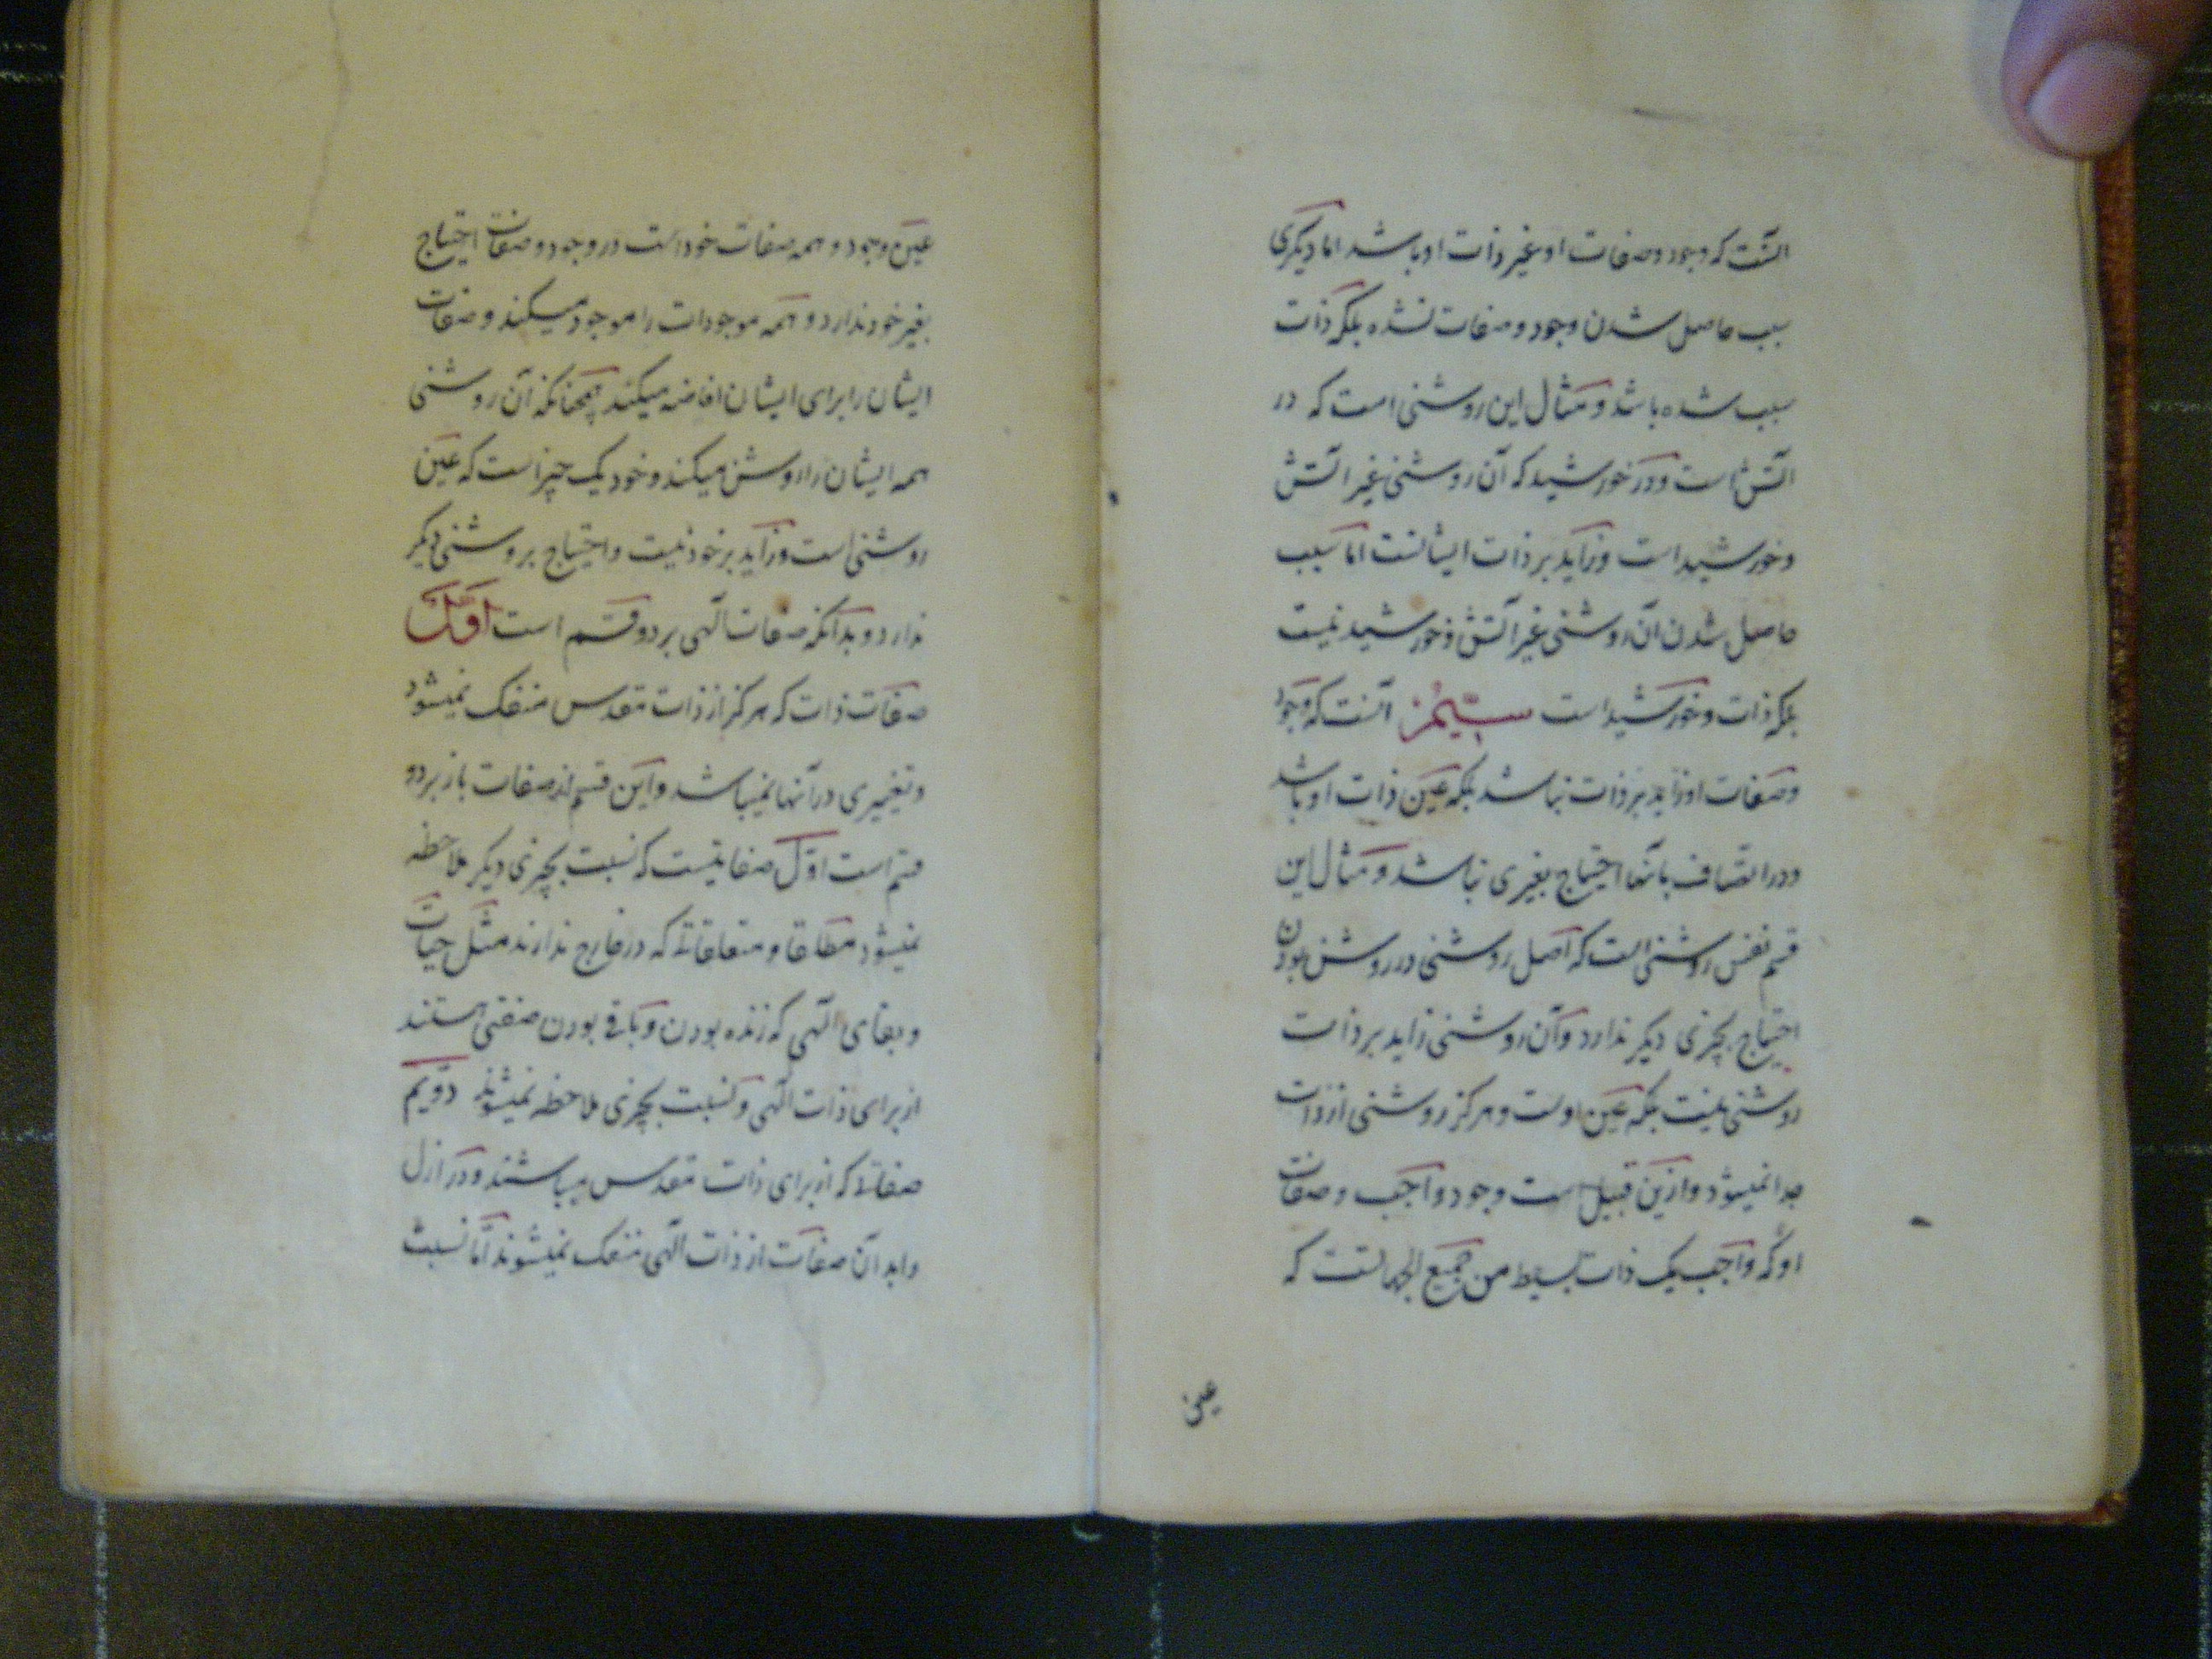 آنست که وجود و صفات او غیر ذات او باشد اما دیگری
سبب حاصل شدن وجود و صفات نشده بلکه ذات
سبب شده باشد و مثال این روشنی است که در
آتش است و در خورشید که آن روشنی غیر آتش
و خورشید است و زاید بر ذات ایشانست اما سبب
حاصل شدن آن روشنی غیر آتش و خورشید نیست
بلکه ذات و خورشید است سیّم آنست که وجود
و صفات او زاید بر ذات نباشد بلکه عین ذات او باشد
و در اتّصاف بآنها احتیاج بغیری نباشد و مثال این
قسم نفس روشنی است که اصل روشنی در روشن بودن
احتیاج بچیزی دیگر ندارد و آن روشنی زاید بر ذات
روشنی نیست بلکه عین اوست و هرگز روشنی از ذات
جدا نمیشود و ازین قبیل است وجود واجب و صفات
او که واجب یک ذات بسیط من جمیع الجهاتست که
عین
عین وجود و همه صفات خود است در وجود و صفات احتیاج
بغیر خود ندارد و همه موجودات را موجود میکند و صفات
ایشان را برای ایشان افاضه میکند همچنانکه آن روشنی
همه ایشان را روشن میکند و خود یک چیز است که عین
روشنی است و زاید بر خود نیست و احتیاج بروشنی دیگر
ندارد و بدانکه صفات آلهی بر دو قسم است اوّل
صفات ذات که هرگز از ذات مقدس منفک نمیشود
و تغییری در آنها نمیباشد و این قسم از صفات باز بر دو
قسم است اوّل صفاتیست که نسبت بچیزی دیگر ملاحظه
نمیشود مطلقا و متعلقاتی که در خارج ندارند مثل حیات
و بقای آلهی که زنده بودن و باقی بودن صفتی هستند
از برای ذات آلهی و نسبت بچیزی ملاحظه نمیشوند دوّیم
صفاتی که از برای ذات مقدس میباشند و در ازل
و ابد آن صفات از ذات آلهی منفک نمیشوند امّا نسبت